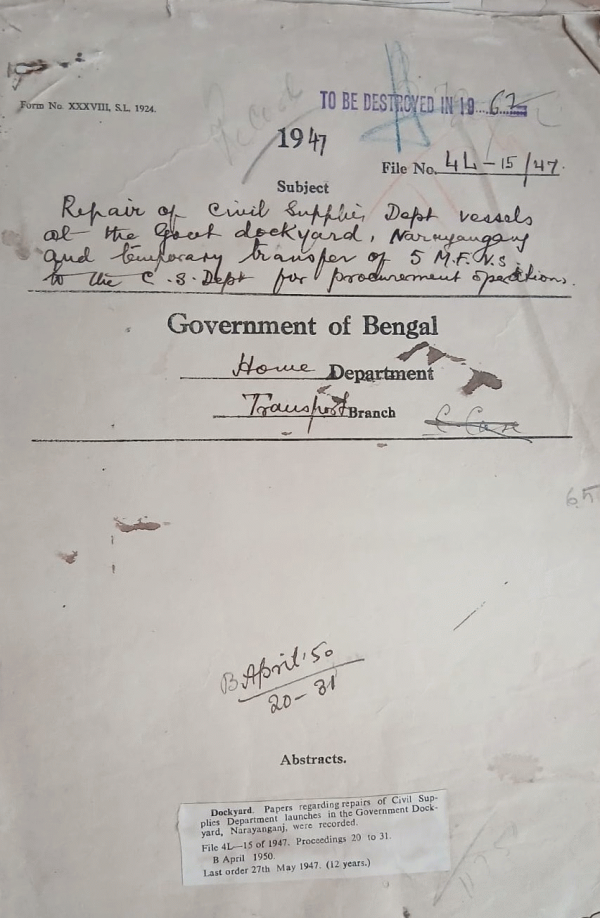 Form No. XXXVIII, S.L. 1924.
TO BE DESTROYED IN 19...62
1947
File No. 4L-15/47.
Subject
Repair of Civil Supplies Dept vessels
at the Govt dockyard, Narayanganj
and temporary transfer of 5 M.F.V.s
to the C.S. Dept for procurement operations.
Government of Bengal
Home Department
Transport Branch
B April '50
20-31
Abstracts.
Dockyard. Papers regarding repairs of Civil Sup-
plies Department launches in the Government Dock-
yard, Narayanganj, were recorded.
File 4L—15 of 1947. Proceedings 20 to 31.
B April 1950.
Last order 27th May 1947. (12 years.)